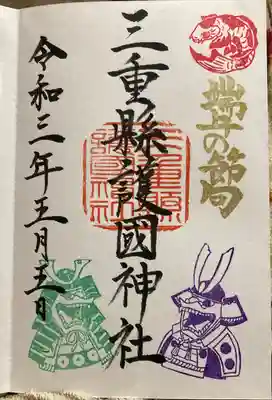 端午の節句
三重縣護國神社
三重縣護國神社
令和三年五月五日